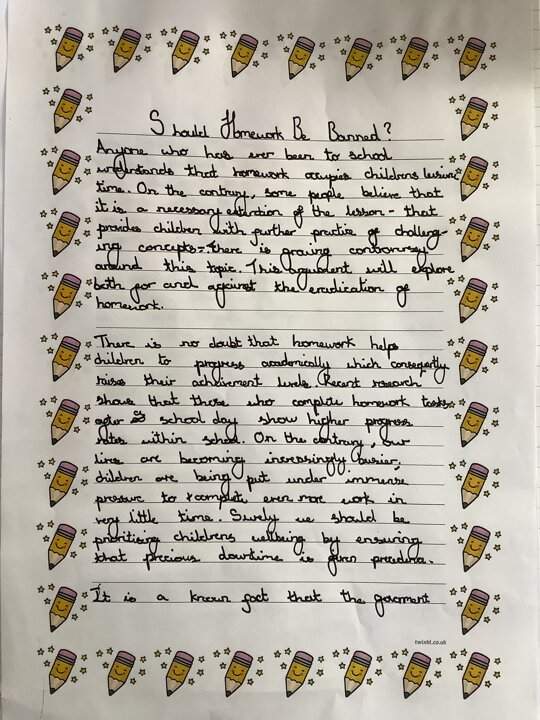 Should Homework Be Banned?
Anyone who has ever been to school
understands that homework occupies childrens leisure
time. On the contrary, some people believe that
it is a necessary extention of the lesson - that
provides children with further practice of challeng-
ing concepts - there is growing controversy
around this topic. This argument will explore
both for and against the eradication of
homework.
There is no doubt that homework helps
children to progress academically which conseqently
raises their achievement levels. Recent research
shows that those who complete homework tasks
after school day show higher progress
rates within school. On the contrary, our
lives are becoming increasingly busier,
children are being put under immense
pressure to complete even more work in
very little time. Surely we should be
prioritising childrens wellbeing by ensuring
that precious downtime is given
It is a known fact that the goverment
twinkl.co.uk